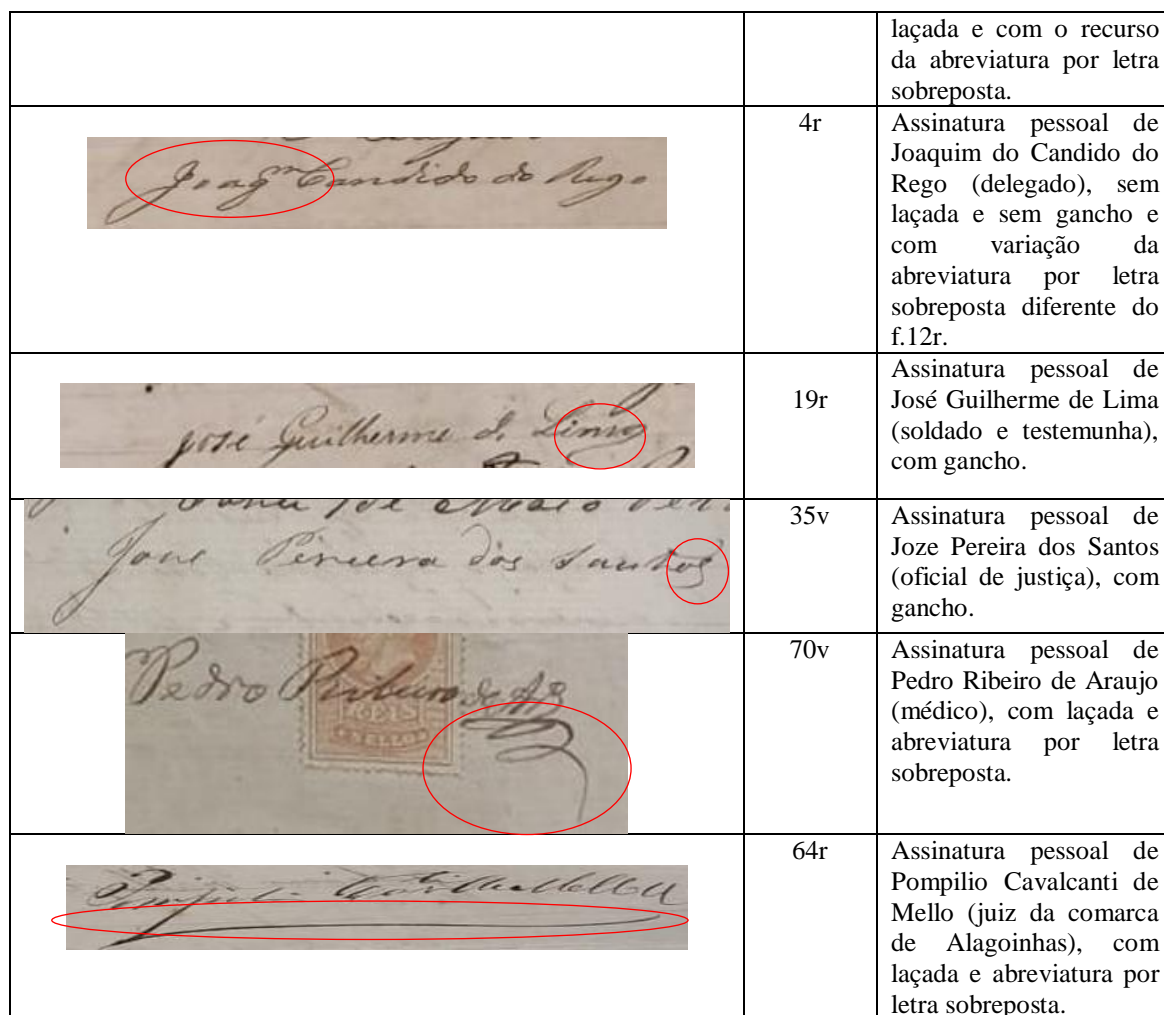 laçada e com o recurso
da abreviatura por letra
sobreposta.
Joaqm Candido do Rego
4r
Assinatura pessoal de
Joaquim do Candido do
Rego (delegado), sem
laçada e sem gancho e
com variação da
abreviatura por letra
sobreposta diferente do
f.12r.
José Guilherme d. Lima
19r
Assinatura pessoal de
José Guilherme de Lima
(soldado e testemunha),
com gancho.
de Maio
Joze Pereira dos Santos
35v
Assinatura pessoal de
Joze Pereira dos Santos
(oficial de justiça), com
gancho.
Pedro Ribeiro de
REIS
70v
Assinatura pessoal de
Pedro Ribeiro de Araujo
(médico), com laçada e
abreviatura por letra
sobreposta.
64r
Assinatura pessoal de
Pompilio Cavalcanti de
Mello (juiz da comarca
de Alagoinhas), com
laçada e abreviatura por
letra sobreposta.